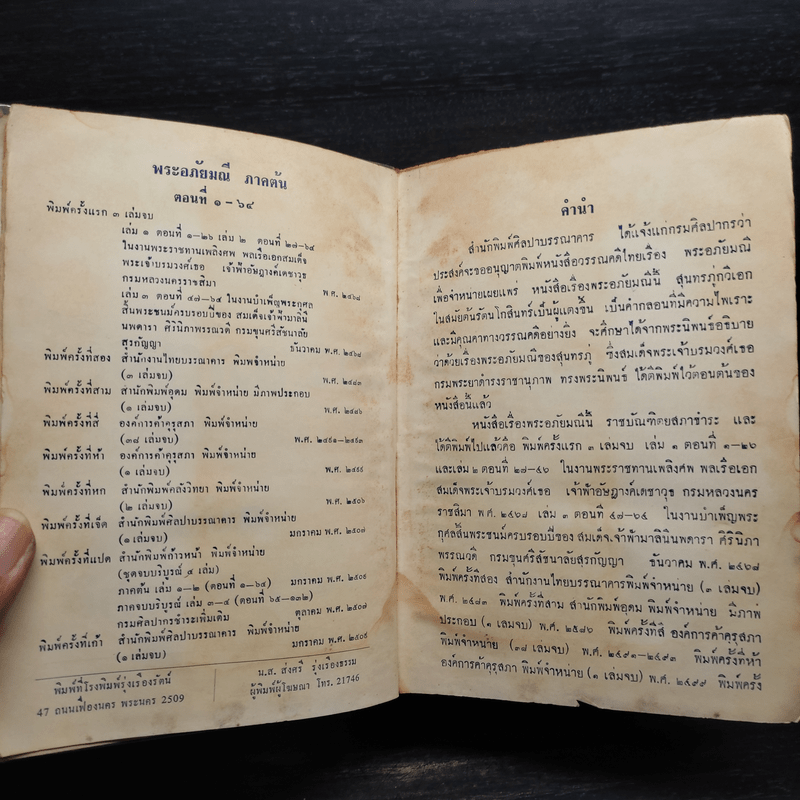 พระอภัยมณี ภาคต้น
ตอนที่ ๑ - ๖๔
พิมพ์ครั้งแรก ๓ เล่มจบ
เล่ม ๑ ตอนที่ ๑-๒๖ เล่ม ๒ ตอนที่ ๒๗-๖๔
ในงานพระราชทานเพลิงศพ พลเรือเอกสมเด็จ
พระเจ้าบรมวงศ์เธอ เจ้าฟ้าอัษฎางค์เดชาวุธ
กรมหลวงนครราชสีมา พ.ศ. ๒๔๖๘
เล่ม ๓ ตอนที่ ๔๗-๖๔ ในงานบำเพ็ญพระกุศล
สิ้นพระชนม์ครบรอบปีของ สมเด็จเจ้าฟ้ามาลินี
นพดารา ศิรินิภาพรรณวดี กรมขุนศรีสัชนาลัย
สุรกัญญา ธันวาคม พ.ศ. ๒๔๖๘
พิมพ์ครั้งที่สอง สำนักงานไทยบรรณาคาร พิมพ์จำหน่าย
(๓ เล่มจบ) พ.ศ. ๒๔๘๓
พิมพ์ครั้งที่สาม สำนักพิมพ์อุดม พิมพ์จำหน่าย มีภาพประกอบ
(๑ เล่มจบ) พ.ศ. ๒๔๘๖
พิมพ์ครั้งที่สี่ องค์การค้าคุรุสภา พิมพ์จำหน่าย
(๓๘ เล่มจบ) พ.ศ. ๒๔๙๑-๒๔๙๓
พิมพ์ครั้งที่ห้า องค์การค้าคุรุสภา พิมพ์จำหน่าย
(๑ เล่มจบ) พ.ศ. ๒๔๙๙
พิมพ์ครั้งที่หก สำนักพิมพ์คลังวิทยา พิมพ์จำหน่าย
(๒ เล่มจบ) พ.ศ. ๒๕๐๖
พิมพ์ครั้งที่เจ็ด สำนักพิมพ์ศิลปาบรรณาคาร พิมพ์จำหน่าย
(๑ เล่มจบ) มกราคม พ.ศ. ๒๕๐๗
พิมพ์ครั้งที่แปด สำนักพิมพ์ก้าวหน้า พิมพ์จำหน่าย
(ชุดจบบริบูรณ์ ๔ เล่ม)
ภาคต้น เล่ม ๑-๒ (ตอนที่ ๑-๖๔) มกราคม พ.ศ.
ภาคจบบริบูรณ์ เล่ม ๓-๔ (ตอนที่ ๖๕-๑๓๒)
กรมศิลปากรชำระเพิ่มเติม ตุลาคม พ.ศ. ๒๕๐๗
พิมพ์ครั้งที่เก้า สำนักพิมพ์ศิลปาบรรณาคาร พิมพ์จำหน่าย
(๑ เล่มจบ) มกราคม พ.ศ. ๒๕๐๙
พิมพ์ที่โรงพิมพ์รุ่งเรืองรัตน์
47 ถนนเฟื่องนคร พระนคร 2509
น.ส. ส่งศรี รุ่งเรืองธรรม
ผู้พิมพ์ผู้โฆษณา โทร. 21746
คำนำ
สำนักพิมพ์ศิลปาบรรณาคาร ได้แจ้งแก่กรมศิลปากรว่า
ประสงค์จะขออนุญาตพิมพ์หนังสือวรรณคดีไทยเรื่อง พระอภัยมณี
เพื่อจำหน่ายเผยแพร่ หนังสือเรื่องพระอภัยมณีนี้ สุนทรภู่กวีเอก
ในสมัยต้นรัตนโกสินทร์เป็นผู้แต่งขึ้น เป็นคำกลอนที่มีความไพเราะ
และมีคุณค่าทางวรรณคดีอย่างยิ่ง จะศึกษาได้จากพระนิพนธ์อธิบาย
ว่าด้วยเรื่องพระอภัยมณีของสุนทรภู่ ซึ่งสมเด็จพระเจ้าบรมวงศ์เธอ
กรมพระยาดำรงราชานุภาพ ทรงพระนิพนธ์ ได้ตีพิมพ์ไว้ตอนต้นของ
หนังสือนี้แล้ว
หนังสือเรื่องพระอภัยมณีนี้ ราชบัณฑิตยสภาชำระ และ
ได้ตีพิมพ์ไปแล้วคือ พิมพ์ครั้งแรก ๓ เล่มจบ เล่ม ๑ ตอนที่ ๑-๒๖
และเล่ม ๒ ตอนที่ ๒๗-๔๖ ในงานพระราชทานเพลิงศพ พลเรือเอก
สมเด็จพระเจ้าบรมวงศ์เธอ เจ้าฟ้าอัษฎางค์เดชาวุธ กรมหลวงนคร
ราชสีมา พ.ศ. ๒๔๖๘ เล่ม ๓ ตอนที่ ๔๗-๖๔ ในงานบำเพ็ญพระ
กุศลสิ้นพระชนม์ครบรอบปีของ สมเด็จเจ้าฟ้ามาลินีนพดารา ศิรินิภา
พรรณวดี กรมขุนศรีสัชนาลัยสุรกัญญา ธันวาคม พ.ศ. ๒๔๖๘
พิมพ์ครั้งที่สอง สำนักงานไทยบรรณาคารพิมพ์จำหน่าย (๓ เล่มจบ)
พ.ศ. ๒๔๘๓ พิมพ์ครั้งที่สาม สำนักพิมพ์อุดม พิมพ์จำหน่าย มีภาพ
ประกอบ (๑ เล่มจบ) พ.ศ. ๒๕๘๖ พิมพ์ครั้งที่สี่ องค์การค้าคุรุสภา
พิมพ์จำหน่าย (๓๘ เล่มจบ) พ.ศ. ๒๔๙๑-๒๔๙๓ พิมพ์ครั้งที่ห้า
องค์การค้าคุรุสภา พิมพ์จำหน่าย (๑ เล่มจบ) พ.ศ. ๒๔๙๙ พิมพ์ครั้ง